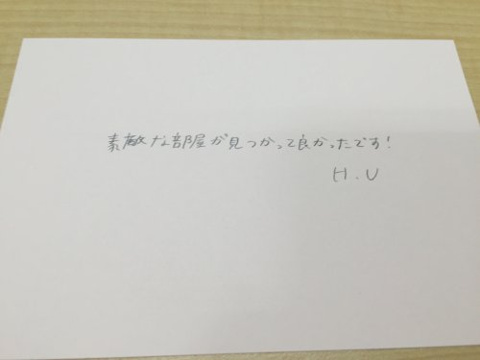 素敵な部屋が見つかって良かったです！
H.U